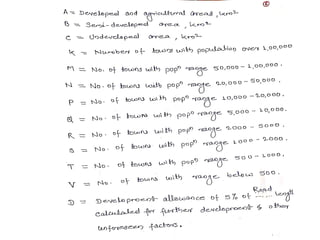 ⑧
A = Developed and agricultural areas, kms²
B = Semi-developed area, kms²
C = Undeveloped area, kms²
K = Number of towns with population over 1,00,000
M = No. of towns with popⁿ range 50,000 - 1,00,000.
N = No. of towns with popⁿ range 20,000 - 50,000.
P = No. of towns with popⁿ range 10,000 - 20,000.
Q = No. of towns with popⁿ range 5,000 - 10,000.
R = No. of towns with popⁿ range 2000 - 5000.
S = No. of towns with popⁿ range 1000 - 2000.
T = No. of towns with popⁿ range 500 - 1000.
V = No. of towns with range below 500.
D = Development allowance of 5% of Road length
calculated for further development & other
unforeseen factors.